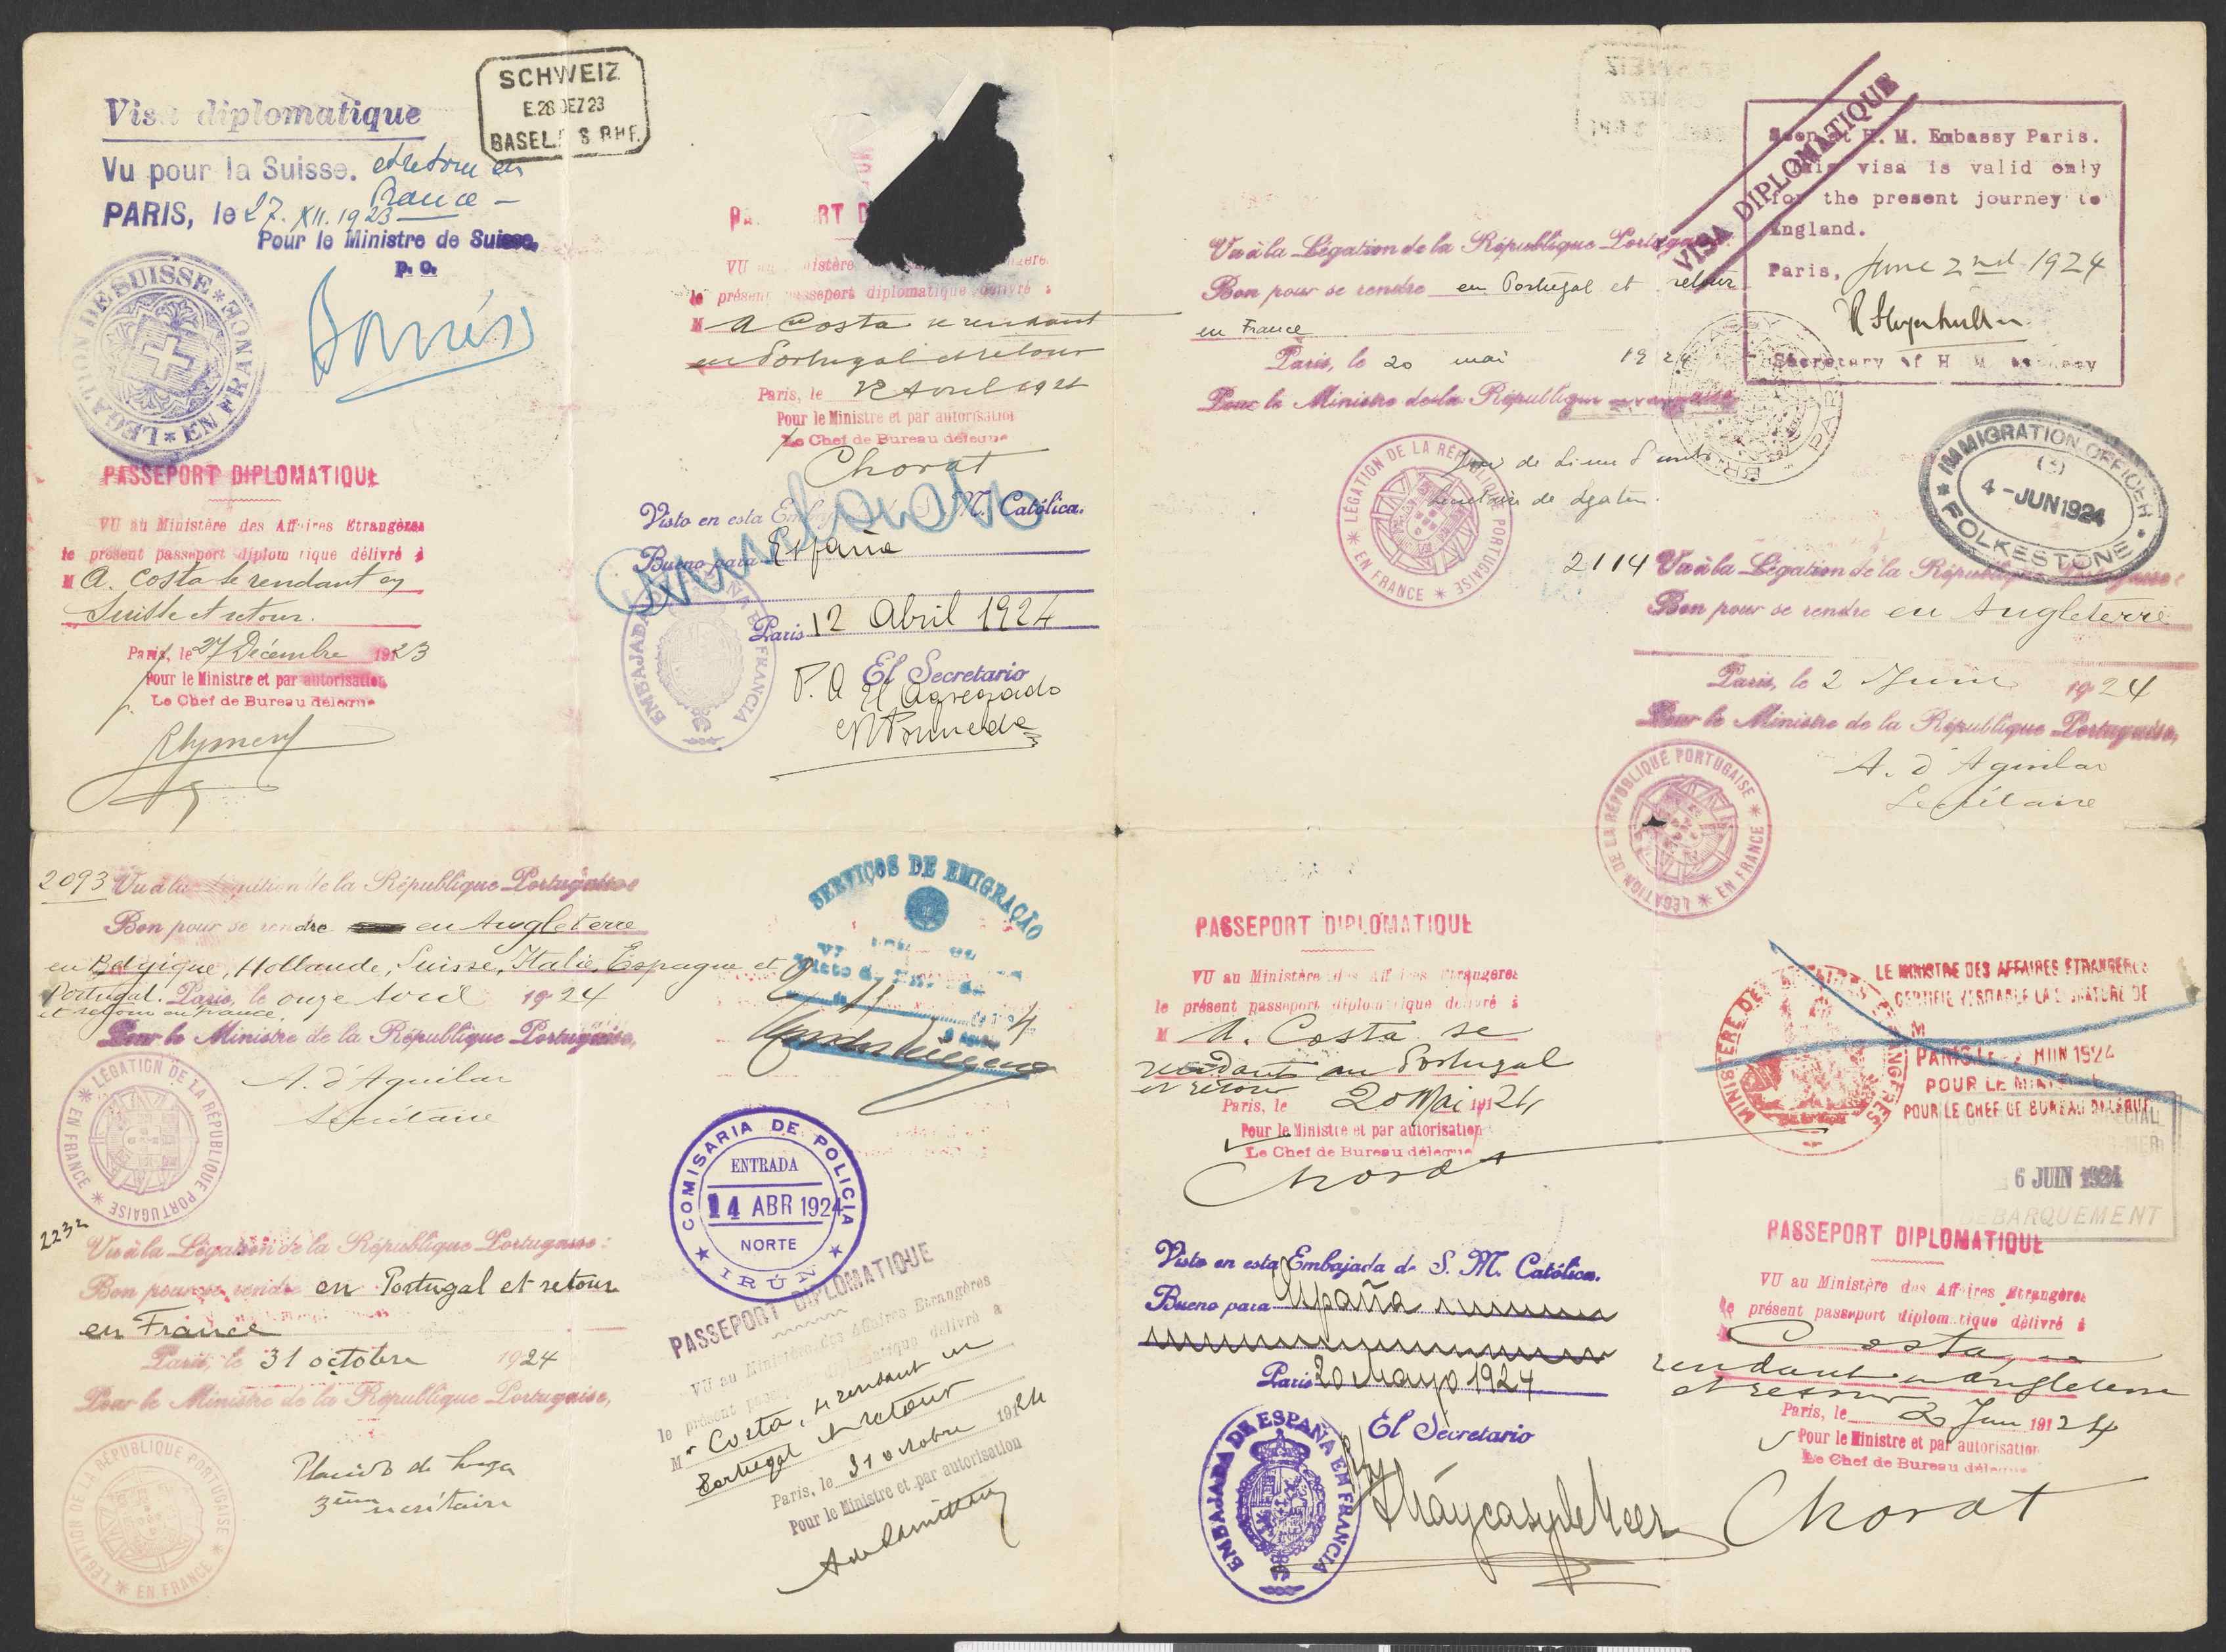 Visa diplomatique
Vu pour la Suisse. et retour en
France
PARIS, le 27. XII. 1923
Pour le Ministre de Suisse,
p. o.
LEGATION DE SUISSE * EN FRANCE *
SCHWEIZ
E.28 DEZ 23
BASEL
PASSEPORT DIPLOMATIQUE
VU au Ministère des Affaires Etrangères
le présent passeport diplomatique délivré à
M A. Costa se rendant en
Suisse et retour.
Paris, le 27 Décembre 1923
Pour le Ministre et par autorisation
Le Chef de Bureau délégué
VU au
le présent passeport diplomatique délivré à
M A Costa se rendant
en Portugal et retour
Paris, le 12 Avril 1924
Pour le Ministre et par autorisation
Le Chef de Bureau délégué
Chorat
Visto en esta M. Católica.
Bueno para España
Paris 12 Abril 1924
El Secretario
P. A El Agregado
EMBAJADA FRANCIA
Vu à la Légation de la République Portugaise
Bon pour se rendre en Portugal et retour
en France
Paris, le 20 mai 1924
Pour le Ministre de la République
LÉGATION DE LA RÉPUBLIQUE PORTUGAISE * EN FRANCE *
VISA DIPLOMATIQUE
Seen at H. M. Embassy Paris.
This visa is valid only
for the present journey to
England.
Paris, June 2nd 1924
Secretary of H M
IMMIGRATION OFFICER
(3)
4 -JUN 1924
* FOLKESTONE *
2114 Vu à la Légation de la République
Bon pour se rendre en Angleterre
Paris, le 2 Juin 1924
Pour le Ministre de la République Portugaise,
A. d'Aguilar
Secrétaire
LÉGATION DE LA RÉPUBLIQUE PORTUGAISE * EN FRANCE *
2093 Vu à la Légation de la République Portugaise
Bon pour se rendre en Angleterre
en Belgique, Hollande, Suisse, Italie, Espagne et
Portugal. Paris, le onze Avril 1924
et retour en France.
Pour le Ministre de la République Portugaise,
A. d'Aguilar
Secrétaire
* LÉGATION DE LA RÉPUBLIQUE PORTUGAISE * EN FRANCE
2232
Vu à la Légation de la République Portugaise:
Bon pour se rendre en Portugal et retour
en France
Paris, le 31 octobre 1924
Pour le Ministre de la République Portugaise,
3ème secrétaire
LÉGATION DE LA RÉPUBLIQUE PORTUGAISE * EN FRANCE *
SERVIÇOS DE EMIGRAÇÃO
COMISARIA DE POLICIA
ENTRADA
14 ABR 1924
NORTE
* IRÚN *
PASSEPORT DIPLOMATIQUE
VU au Ministère des Affaires Etrangères
le présent délivré à
Mr Costa, se rendant en
Portugal et retour
Paris, le 31 octobre 1924
Pour le Ministre et par autorisation
PASSEPORT DIPLOMATIQUE
VU au Ministère des Affaires Etrangères
le présent passeport diplomatique délivré à
M A. Costa se
rendant au Portugal
et retour
Paris, le 20 Mai 1924
Pour le Ministre et par autorisation
Le Chef de Bureau délégué
Chorat
Visto en esta Embajada de S. M. Católica.
Bueno para España
Paris 20 Mayo 1924
El Secretario
EMBAJADA DE ESPAÑA EN FRANCIA
MINISTERE DES AFFAIRES ETRANGERES
LE MINISTRE DES AFFAIRES ETRANGERES
CERTIFIE VERITABLE LA SIGNATURE DE
M
PARIS LE 2 JUIN 1924
POUR LE MINISTRE
POUR LE CHEF DE BUREAU DELEGUE
6 JUIN 1924
DEBARQUEMENT
PASSEPORT DIPLOMATIQUE
VU au Ministère des Affaires Etrangères
le présent passeport diplomatique délivré à
M Costa, se
rendant en Angleterre
et retour
Paris, le 2 Juin 1924
Pour le Ministre et par autorisation
Le Chef de Bureau délégué
Chorat